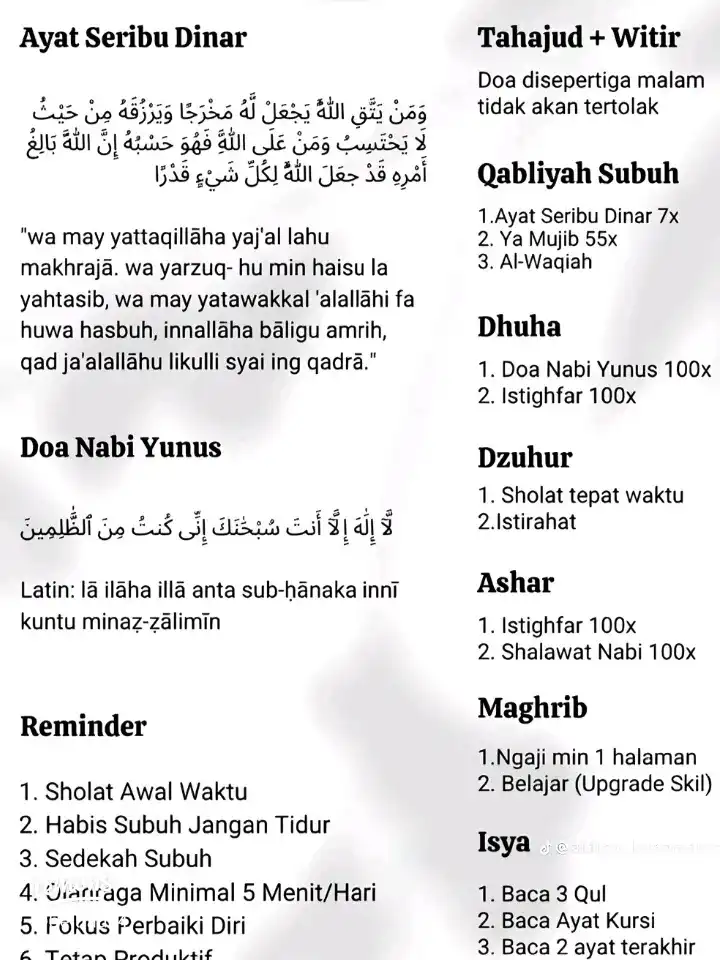 Ayat Seribu Dinar
وَمَنْ يَتَّقِ اللَّهَ يَجْعَلْ لَّهُ مَخْرَجًا وَيَرْزُقْهُ مِنْ حَيْثُ
لَا يَحْتَسِبُ وَمَنْ عَلَى اللَّهِ فَهُوَ حَسْبُهُ إِنَّ اللَّهَ بَالِغُ
أَمْرِهِ قَدْ جعَلَ اللَّهُ لِكُلِّ شَيْءٍ قَدْرًا
"wa may yattaqillāha yaj'al lahu
makhrajā. wa yarzuq- hu min haisu la
yahtasib, wa may yatawakkal 'alallāhi fa
huwa hasbuh, innallāha bāligu amrih,
qad ja'alallāhu likulli syai ing qadrā."
Doa Nabi Yunus
لَّآ إِلَٰهَ إِلَّآ أَنتَ سُبْحَٰنَكَ إِنِّى كُنتُ مِنَ ٱلظَّٰلِمِينَ
Latin: lā ilāha illā anta sub-ḥānaka innī
kuntu minaẓ-ẓālimīn
Reminder
1. Sholat Awal Waktu
2. Habis Subuh Jangan Tidur
3. Sedekah Subuh
4. Olahraga Minimal 5 Menit/Hari
5. Fokus Perbaiki Diri
6. Tetap Produktif
Tahajud + Witir
Doa disepertiga malam
tidak akan tertolak
Qabliyah Subuh
1.Ayat Seribu Dinar 7x
2. Ya Mujib 55x
3. Al-Waqiah
Dhuha
1. Doa Nabi Yunus 100x
2. Istighfar 100x
Dzuhur
1. Sholat tepat waktu
2.Istirahat
Ashar
1. Istighfar 100x
2. Shalawat Nabi 100x
Maghrib
1.Ngaji min 1 halaman
2. Belajar (Upgrade Skil)
Isya
1. Baca 3 Qul
2. Baca Ayat Kursi
3. Baca 2 ayat terakhir